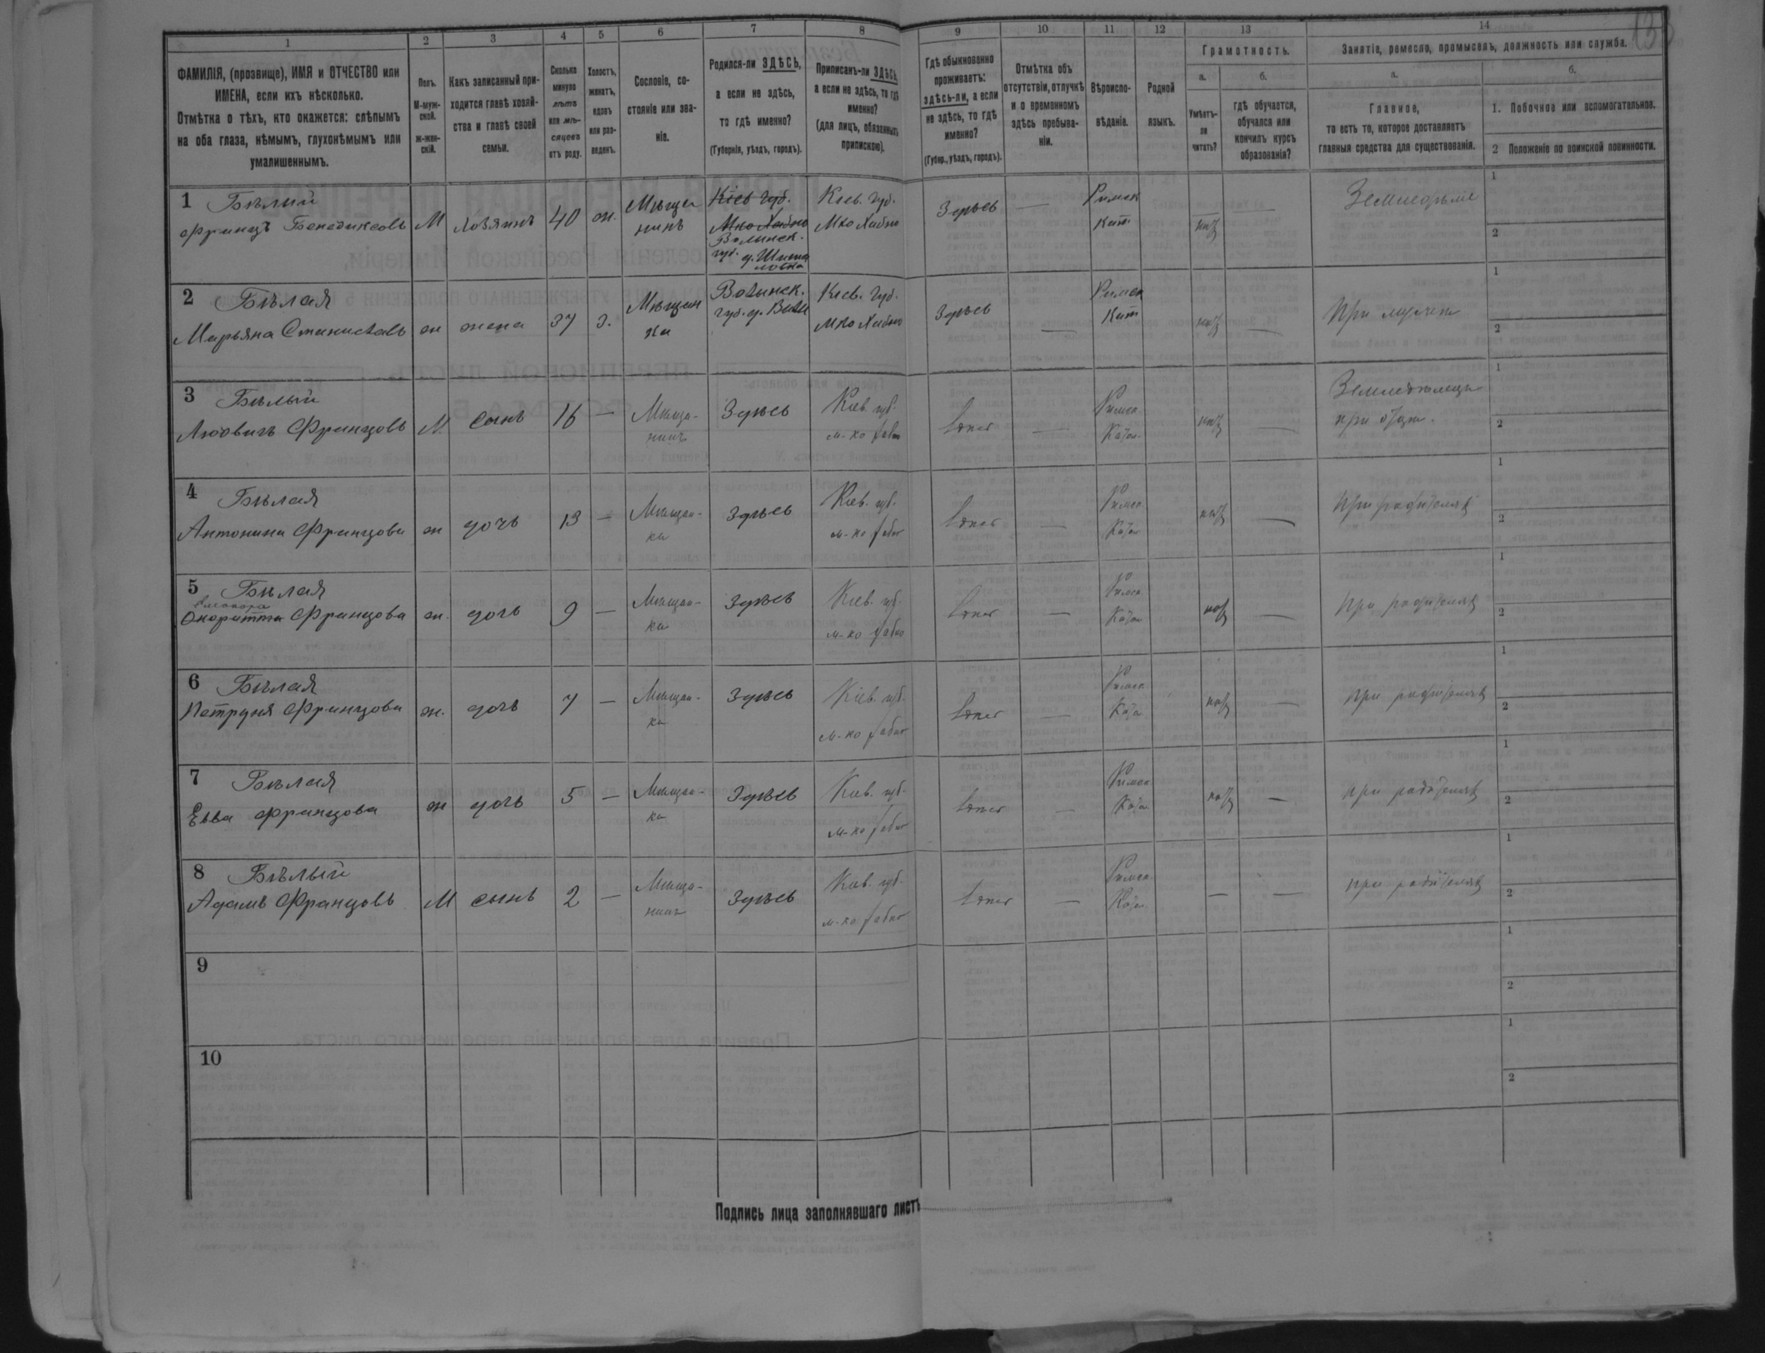 1 2 3 4 5 6 7 8 9 10 11 12 13 14
ФАМИЛІЯ, (прозвище), ИМЯ и ОТЧЕСТВО или
ИМЕНА, если ихъ нѣсколько.
Отмѣтка о тѣхъ, кто окажется: слѣпымъ
на оба глаза, нѣмымъ, глухонѣмымъ или
умалишеннымъ.
Полъ.
М-муж-
ской.
ж-жен-
скій.
Какъ записанный при-
ходится главѣ хозяй-
ства и главѣ своей
семьи.
Сколько
минуло
лѣтъ
или мѣ-
сяцевъ
отъ роду.
Холостъ,
женатъ,
вдовъ
или раз-
веденъ.
Сословіе, со-
стояніе или зва-
ніе.
Родился-ли ЗДѢСЬ,
а если не здѣсь,
то гдѣ именно?
(Губернія, уѣздъ, городъ).
Приписанъ-ли ЗДѢСЬ,
а если не здѣсь, то гдѣ
именно?
(для лицъ, обязанныхъ
припискою).
Гдѣ обыкновенно
проживаетъ:
здѣсь-ли, а если
не здѣсь, то гдѣ
именно?
(Губер., уѣздъ, городъ).
Отмѣтка объ
отсутствіи, отлучкѣ
и о временномъ
здѣсь пребыва-
ніи.
Вѣроиспо-
вѣданіе.
Родной
языкъ.
Грамотность.
а. б.
Умѣетъ-
ли
читать?
гдѣ обучается,
обучался или
кончилъ курсъ
образованія?
Занятіе, ремесло, промыселъ, должность или служба.
а. б.
Главное,
то есть то, которое доставляетъ
главныя средства для существованія.
1. Побочное или вспомогательное.
2 Положеніе по воинской повинности.
1 Бѣлый
Францъ Бенедиктовъ М хозяинъ 40 ж. Мѣща
нинъ
Кіев. губ.
М-ко Хабно
Волынск.
губ. д.
Кіев. Губ.
М-ко Хабно
Здѣсь — Римск
Кат — Земледѣліе
1
2
2 Бѣлая
Марьяна Станиславов ж жена 37 з. Мѣщан
ка
Волынск.
губ. д.
Кіев. Губ.
М-ко Хабно
Здѣсь — Римск
Кат — При мужѣ
1
2
3 Бѣлый
Людвигъ Францовъ М. сынъ 16 — Мѣща-
нинъ
Здѣсь
Кіев. губ.
м-ко Хабно
— Римск
Кат —
при отцѣ.
1
2
4 Бѣлая
Антонина Францова ж дочь 13 — Мѣщан-
ка
Здѣсь
Кіев. губ.
м-ко Хабно
— Римск
Кат — При родителяхъ
1
2
5 Бѣлая
Францова ж. дочь 9 — Мѣщан-
ка
Здѣсь
Кіев. губ.
м-ко Хабно
— Римск
Кат — При родителяхъ
1
2
6 Бѣлая
Петруня Францова ж. дочь 7 — Мѣщан-
ка
Здѣсь
Кіев. губ.
м-ко Хабно
— Римск
Кат — при родителяхъ
1
2
7 Бѣлая
Евва Францова ж дочь 5 — Мѣщан-
ка
Здѣсь
Кіев. губ.
м-ко Хабно
— Римск
Кат — при родителяхъ
1
2
8 Бѣлый
Адамъ Францовъ М сынъ 2 — Мѣща-
нинъ
Здѣсь
Кіев. губ.
м-ко Хабно
— Римск
Кат — — при родителяхъ
1
2
9
1
2
10
1
2
Подпись лица заполнявшаго листъ